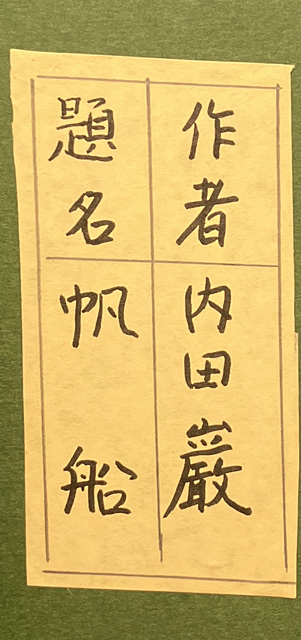 作者 内田巌
題名 帆船